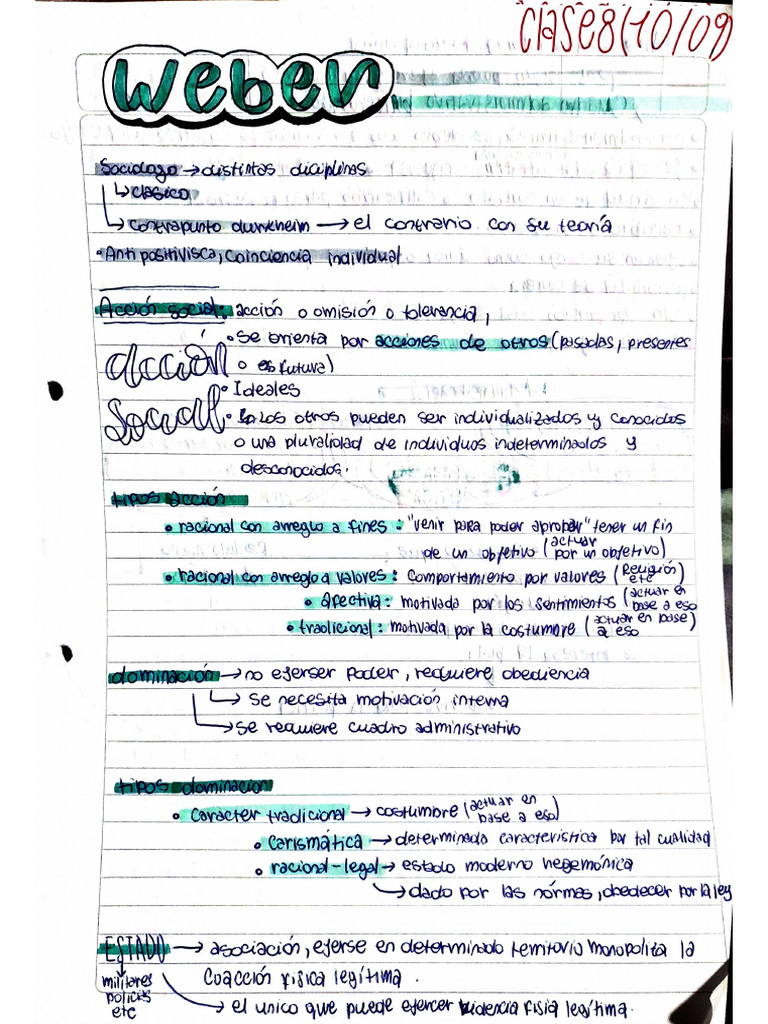 CLASE8(10/09)
Weber
Sociologo → distintas diciplinas
↳ clasico
↳ contrapunto durkheim → el contrario con su teoría
• Antipositivisca, coinciencia individual
Acción social: acción o omisión o tolerancia,
acción social
• Se orienta por acciones de otros (pasadas, presentes
o futura)
• Ideales
• Los otros pueden ser individualizados y conocidos
o una pluralidad de individuos indeterminados y
desconocidos.
tipos acción
• racional con arreglo a fines: "venir para poder aprobar" tener un fin
de un objetivo (actuar por un objetivo)
• racional con arreglo a valores: comportamiento por valores (Religión etc)
• afectiva: motivada por los sentimientos (actuar en base a eso)
• tradicional: motivada por la costumbre (actuar en base a eso)
dominación → no ejerser poder, requiere obediencia
↳ se necesita motivación interna
↳ se requiere cuadro administrativo
tipos dominacion
• Caracter tradicional → costumbre (actuar en base a eso)
• carismática → determinada caracteristica por tal cualidad
• racional-legal → estado moderno hegemónica
↳ dado por las normas, obedecer por la ley
ESTADO → asociación, ejerse en determinado territorio monopoliza la
coacción fisica legítima.
militares
policias
etc
→ el unico que puede ejercer violencia fisia legítima.